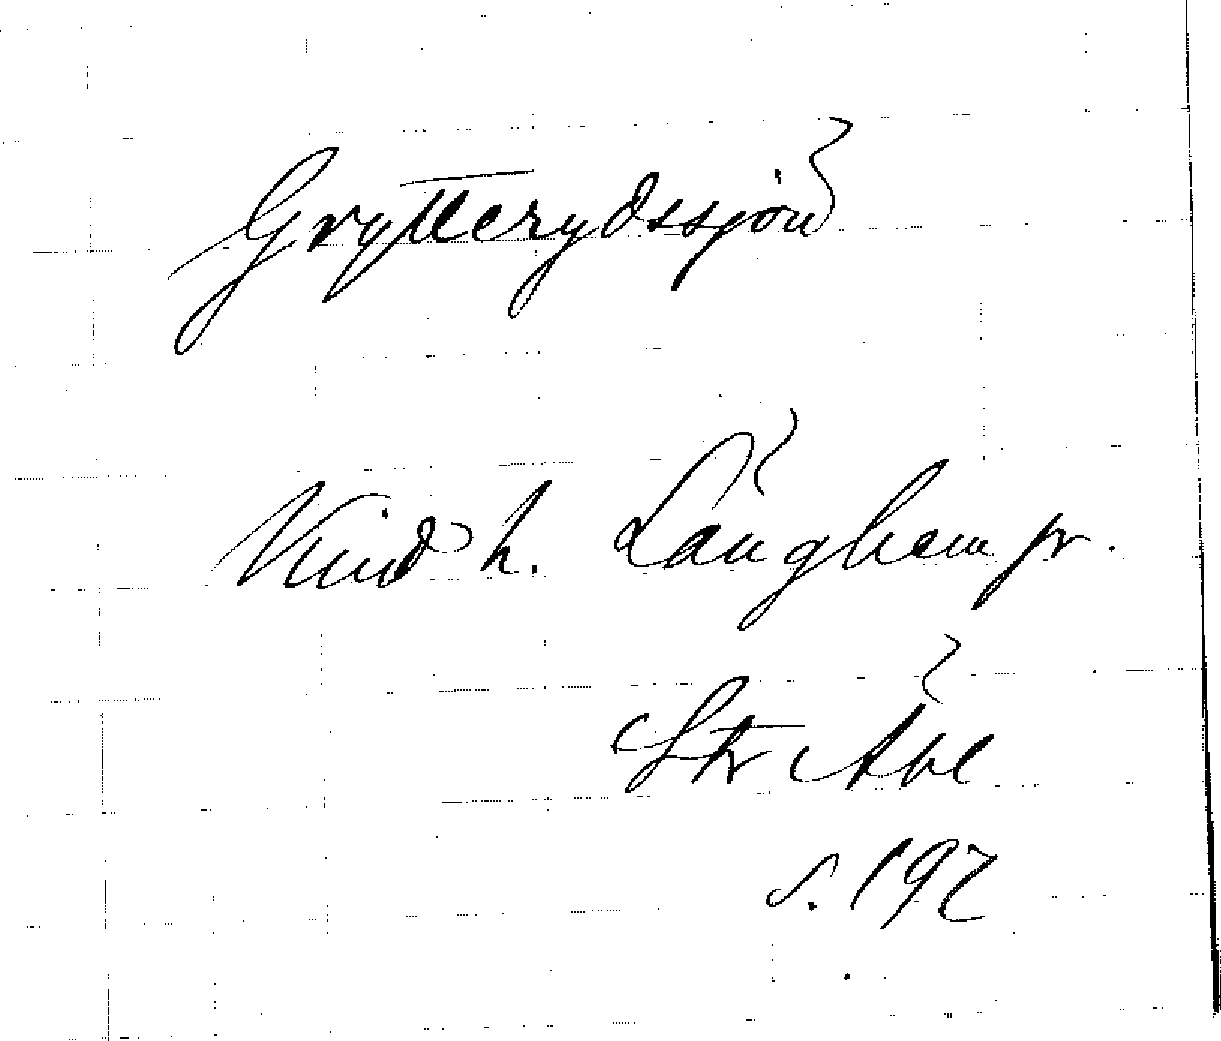 Grytterydssjön
Kind h. Långhem sn.
Str
s. 192